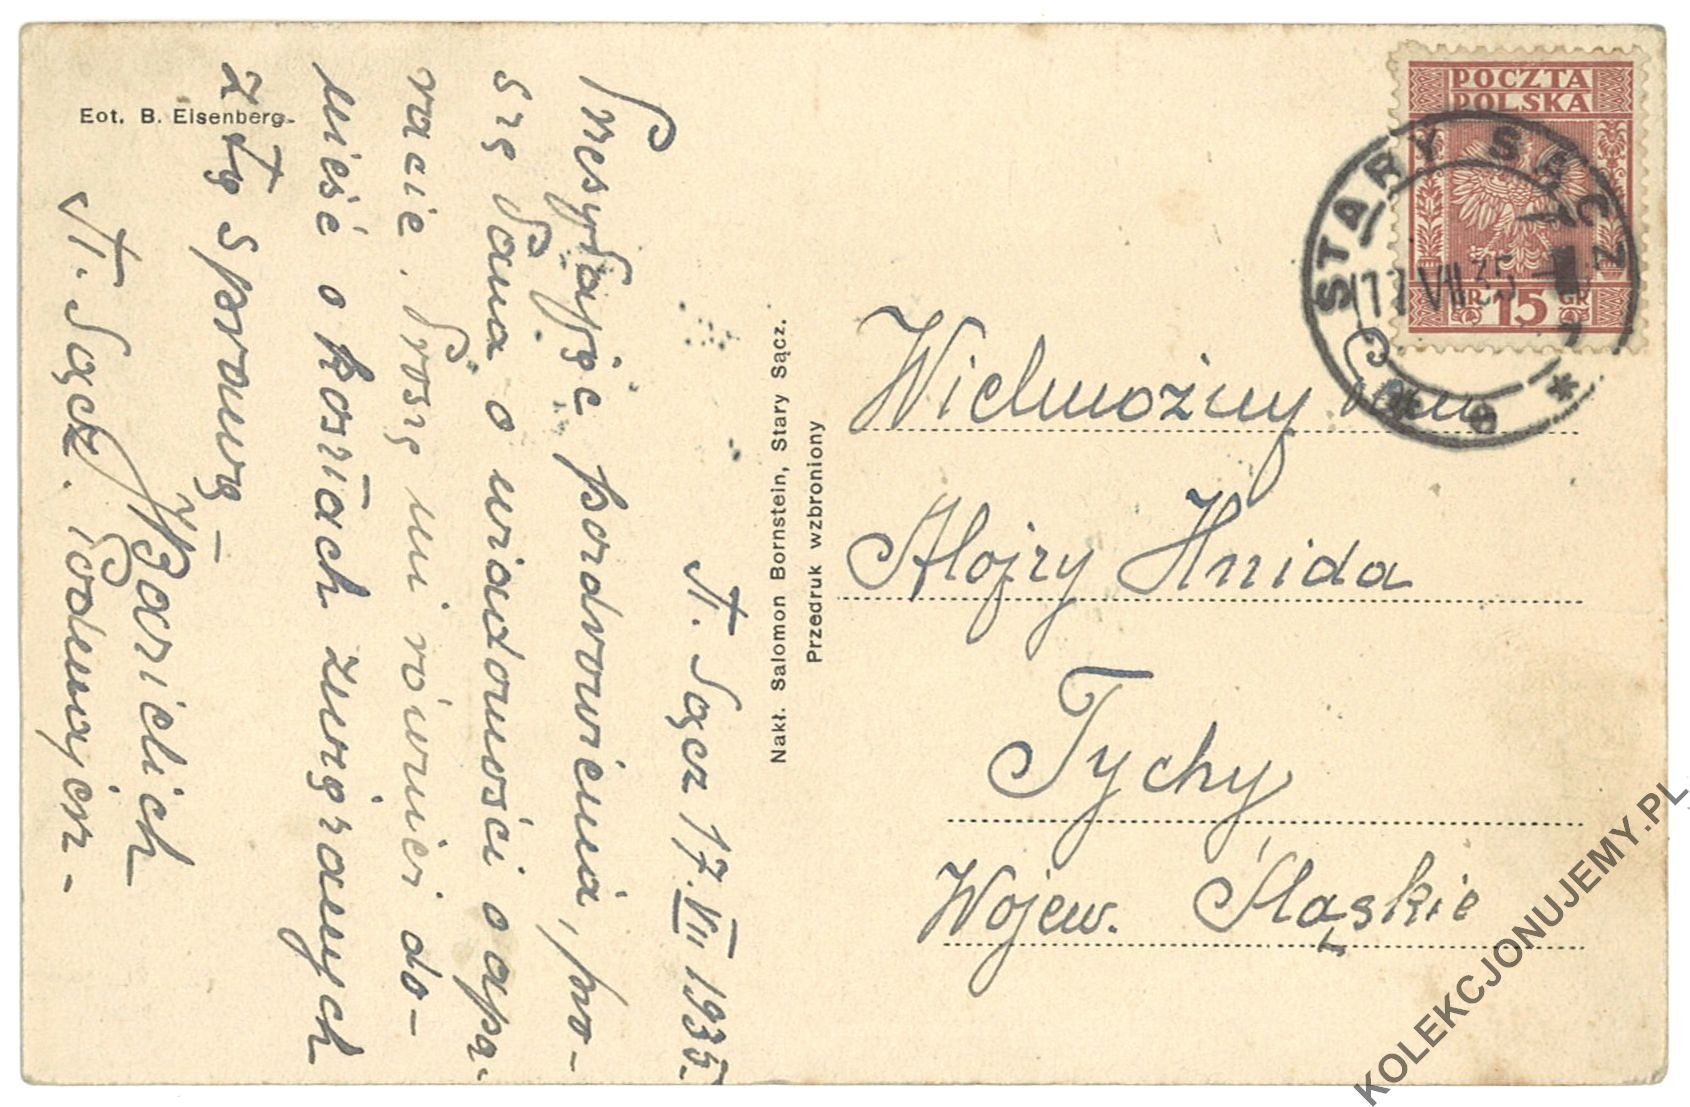 Eot. B. Eisenberg.
St. Sącz 17.VII 1935.
Przesyłając pozdrowienia, pro-
szę Pana o wiadomości o apa-
racie. Proszę mi również do-
nieść o kosztach związanych
z tą sprawą –
St. Sącz. Podmajerz –
Nakł. Salomon Bornstein, Stary Sącz.
Przedruk wzbroniony
POCZTA
POLSKA
GR. 15 GR
STARY SĄCZ
17 VII 35
Wielmożny Pan
Alojzy Hnida
Tychy
Wojew. Śląskie
KOLEKCJONUJEMY.PL